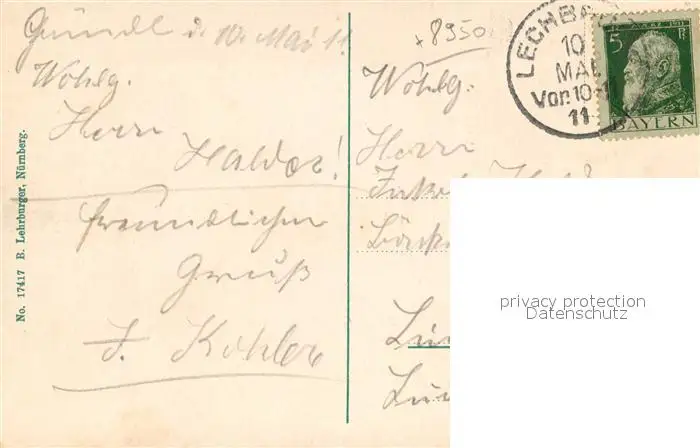 Gründl d. 10. Mai 11.
Wohlg.
Herrn
Halder!
freundlichen
Gruß
J. Kohler
No. 17417 B. Lehrburger, Nürnberg.
+8950
LECHB
10
MAI
Vor. 10-1
11
5
BAYERN
Wohlg.
Herrn
privacy protection
Datenschutz